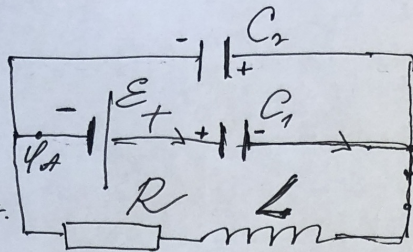 - C₂
+
- ℰ + + C₁ -
φA
R L